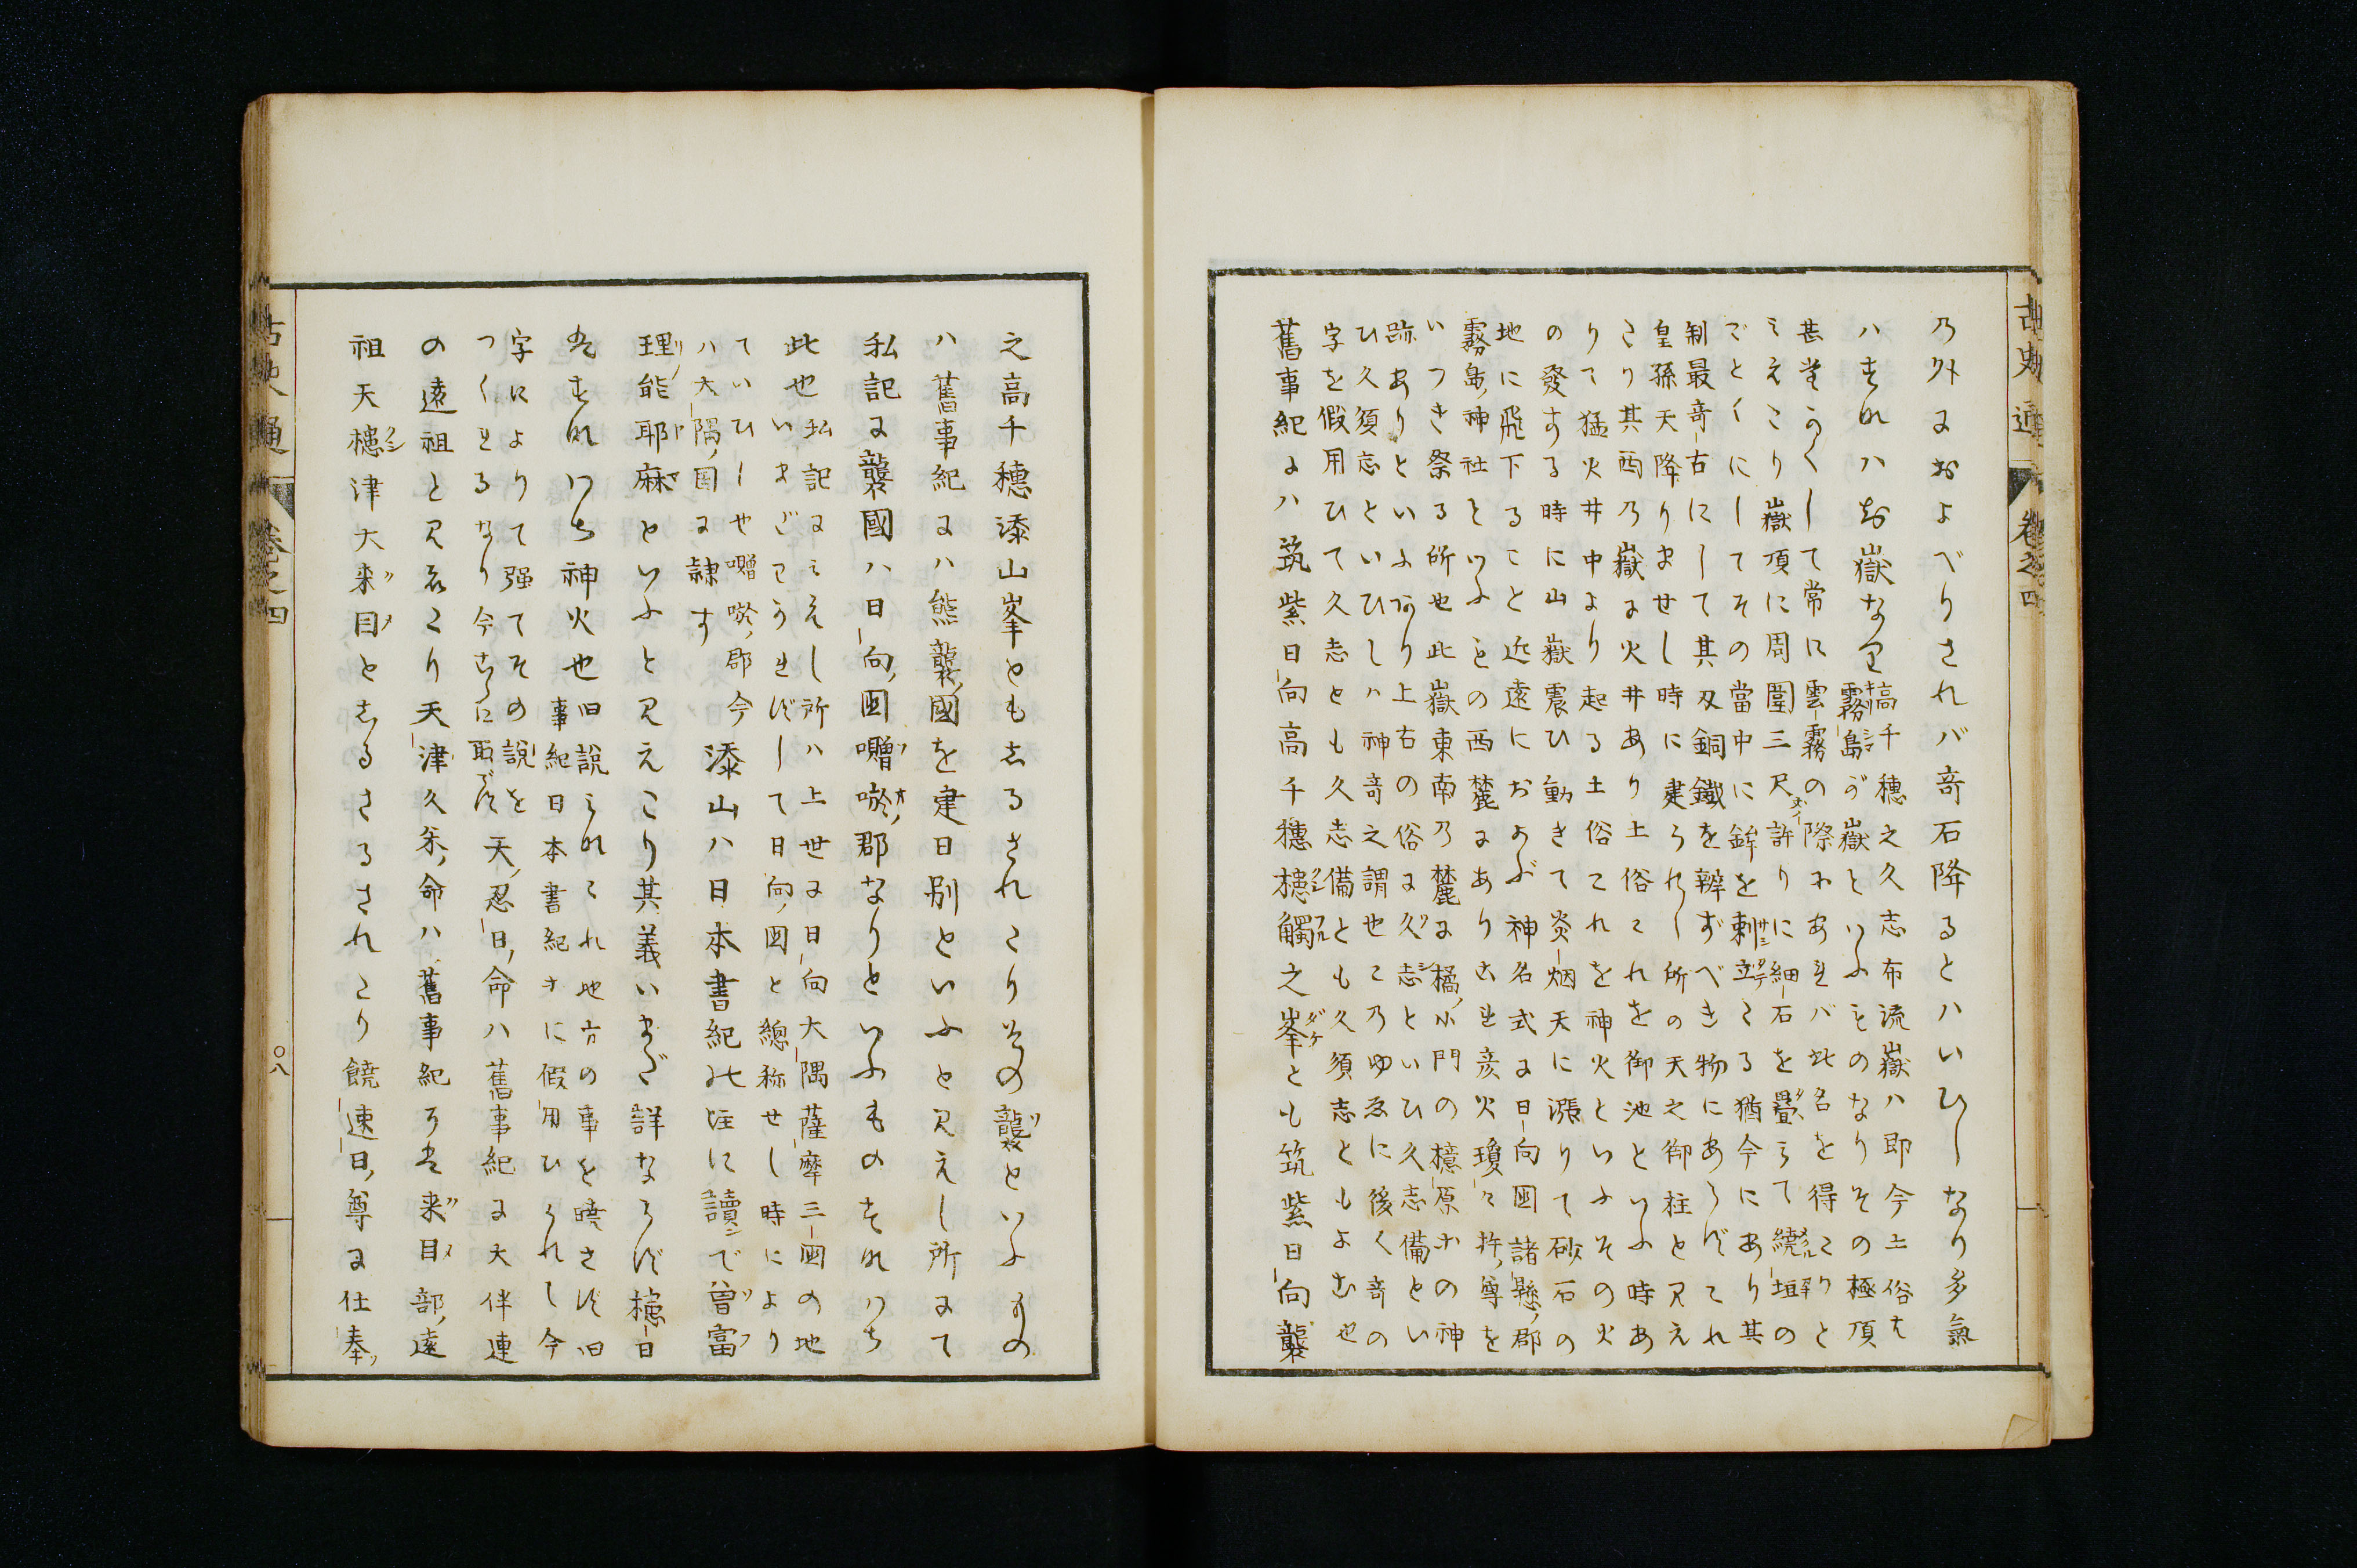 古史通 卷之四
乃外におよべりされバ奇石降るとハいひしなり多氣
ハすなハち嶽なり
高千穗之久志布流嶽ハ即今土俗
霧島が嶽といふものなりその極頂
甚堂かくして常に雲霧の際にあればバ此名を得たりと
みえたり嶽頂に周圍三尺許りに細石を疊みて繞垣の
ごとくにしてその當中に鉾を刺立たる猶今にあり其
制最奇古にして其刄銅鐵を辨ずべき物にあらずこれ
皇孫天降りませし時に建られし所の天之御柱と見え
たり其西乃嶽に火井あり土俗これを御池といふ時あ
りて猛火井中より起る土俗これを神火といふその火
の發する時に山嶽震ひ動きて炎烟天に漲りて砂石の
地に飛下ること近遠におよぶ神名式に日向國諸縣郡
霧島神社といふもの西麓にありこれ彦火瓊々杵尊を
いつき祭る所也此嶽東南乃麓に橘小門の檍原の神
跡ありといふなり上古の俗に久志といひ久志備とい
ひ久須志といひしハ神奇之謂也この故に後く奇の
字を假用ひて久志とも久志備とも久須志ともよむ也
舊事紀にハ筑紫日向高千穗槵觸之峯とも筑紫日向襲
之高千穗添山峯ともしるされたりその襲といふもの
ハ舊事紀にハ熊襲國を建日別といふと見えし所にて
私記に襲國ハ日向國囎唹郡なりといふものすなハち
此也
私記にみえし所ハ上世に日向大隅薩摩三国の地
いまだわかれずして日向國と總称せし時により
ていひし也囎唹郡今
ハ大隅国に隷す
添山ハ日本書紀の註に讀で曽富
理能耶麻といふと見えたり其義いまだ詳ならず槵日
ハすなハち神火也
旧説みなこれ地方の事を曉さず旧
事紀日本書紀等に假用ひられし今
字によりて强てその説を
つくれるなり今こゝに取らず
天忍日命ハ舊事紀に大伴連
の遠祖と見えたり天津久米命ハ舊事紀にハ来目部遠
祖天槵津大来目としるさるされたり饒速日尊に仕奉
古史通 卷之四
〇八